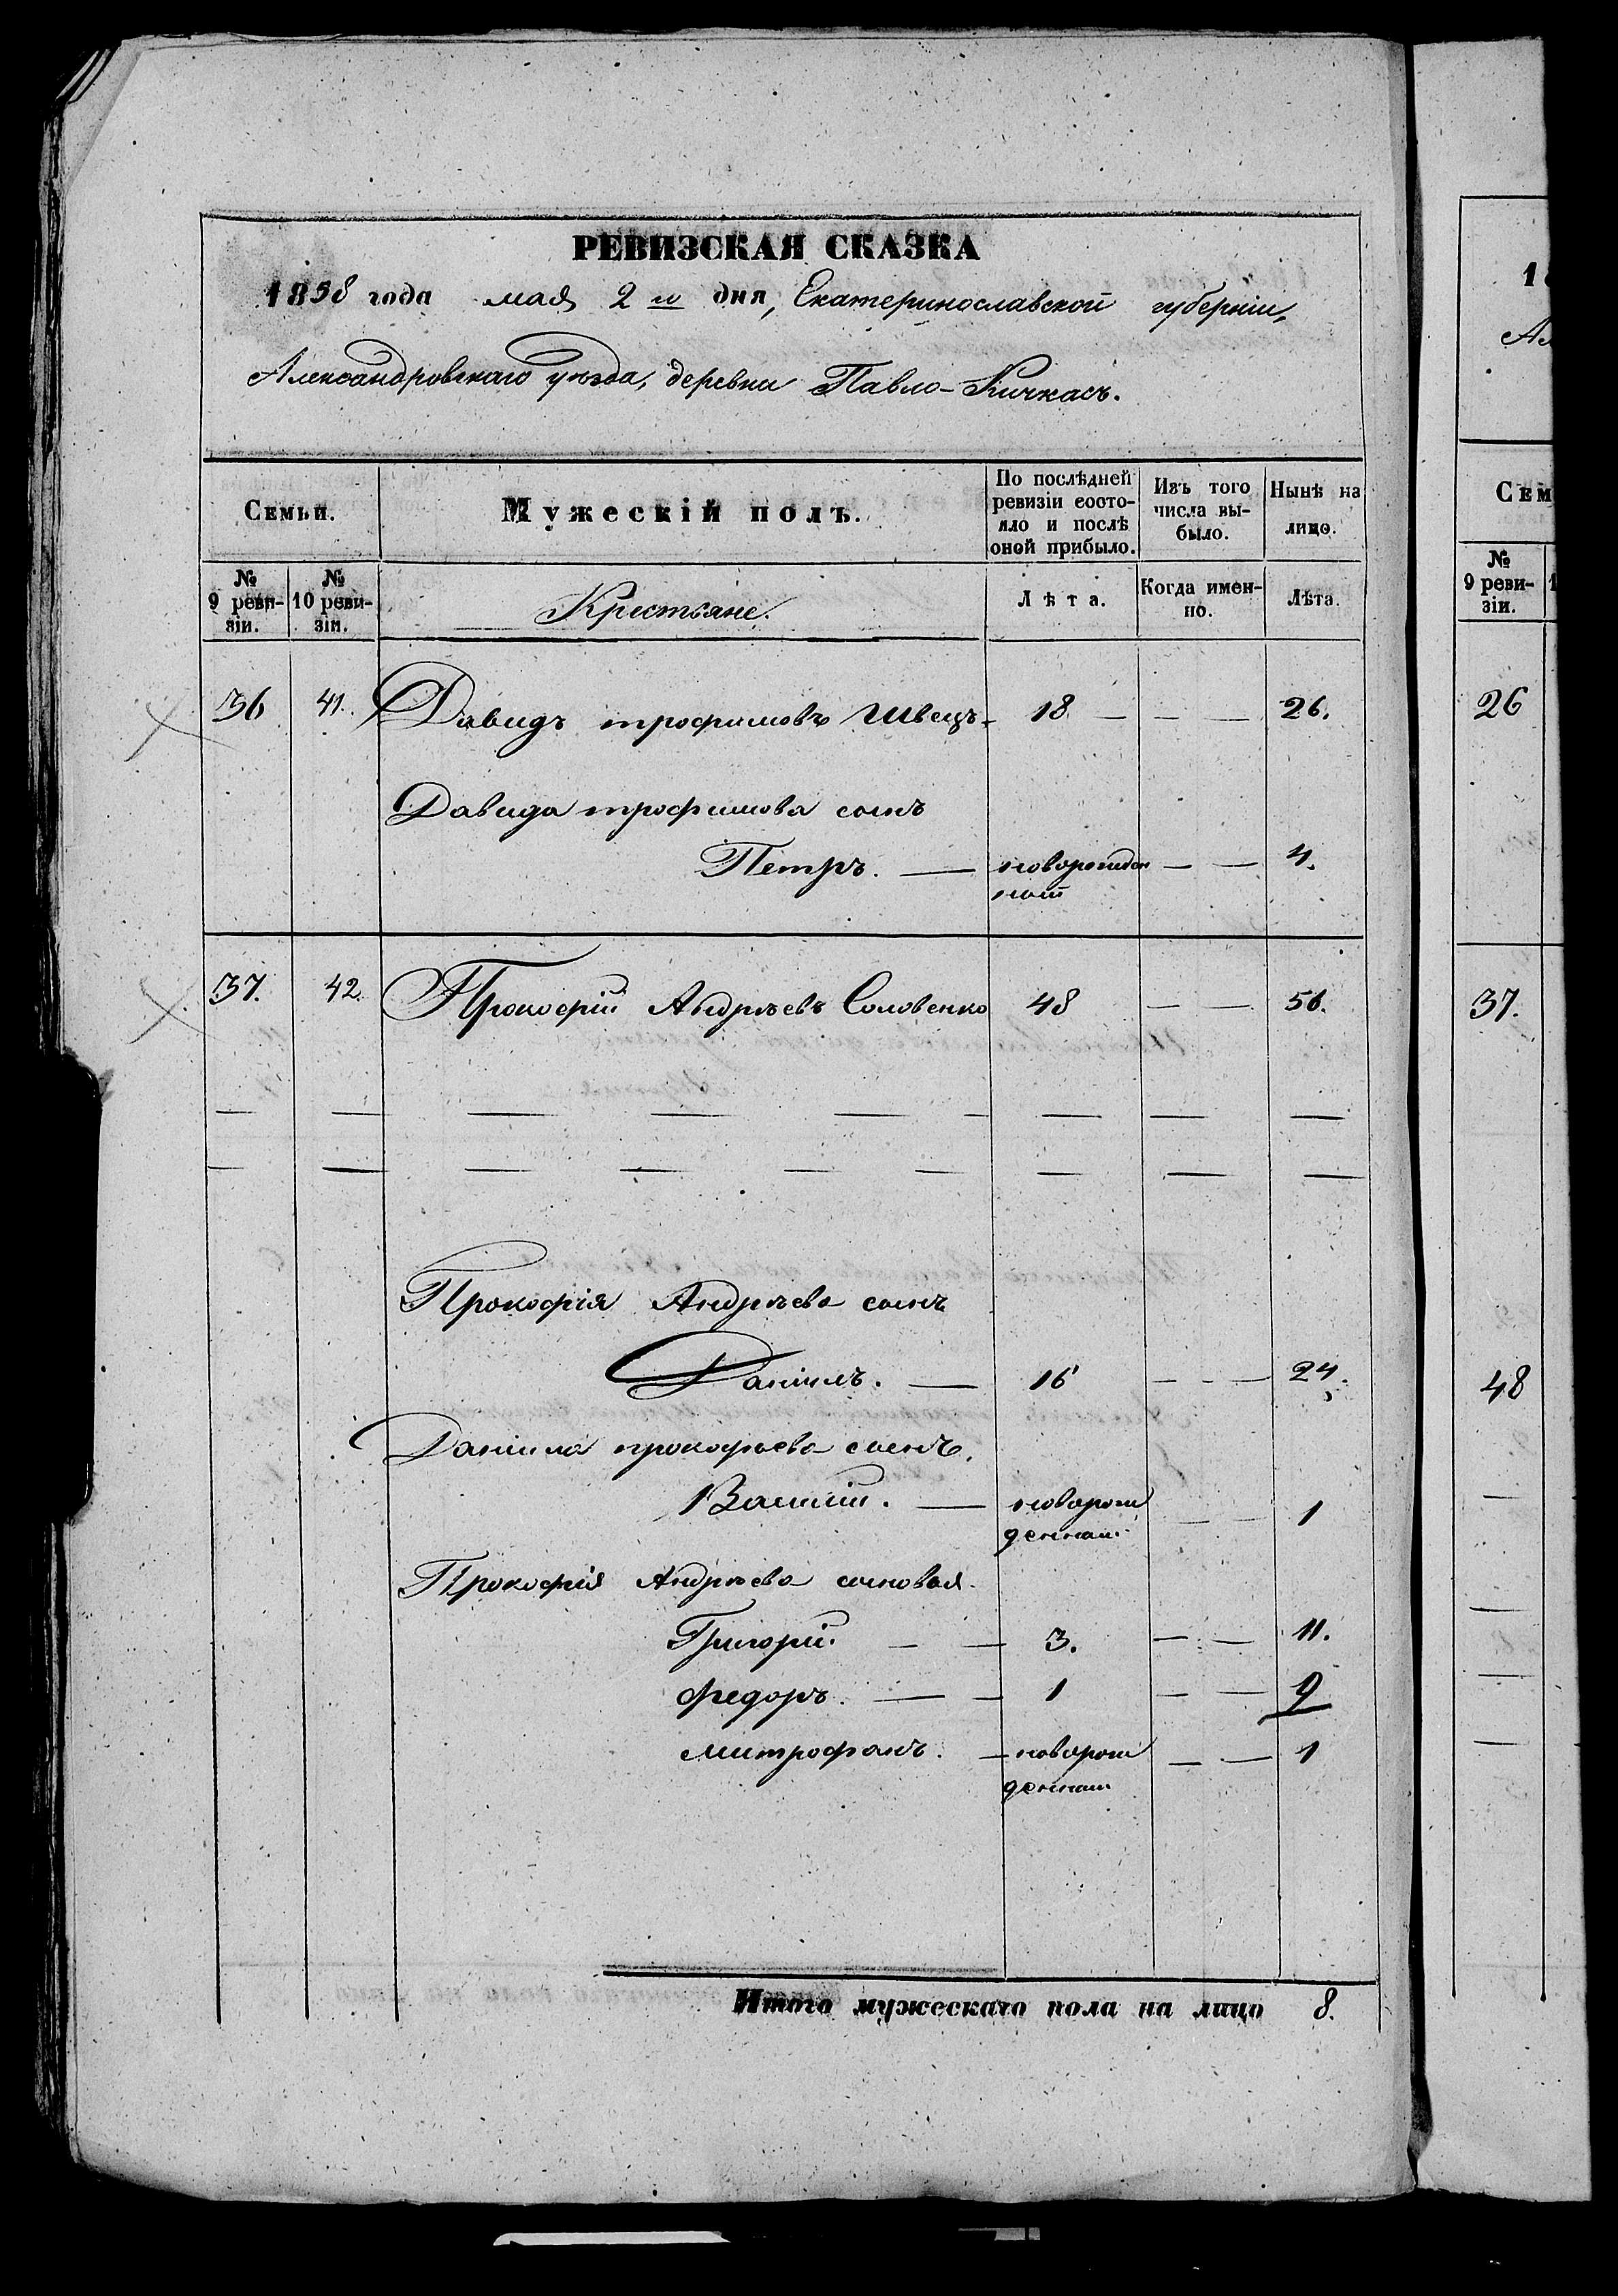 РЕВИЗСКАЯ СКАЗКА
1858 года мая 2 го дня, Екатеринославской губерніи,
Александровскаго уѣзда, деревни Павло-Кичкасъ.
Семьи.
Мужескій полъ.
По послѣдней ревизіи состояло и послѣ оной прибыло.
Изъ того числа выбыло.
Нынѣ на лицо.
№ 9 ревизіи.
№ 10 ревизіи.
Крестьяне.
Лѣта.
Когда именно.
Лѣта.
36 41. Давидъ трофимовъ Швецъ. 18 — — — 26.
Давида трофимова сынъ
Петръ. — новорожденный — — 4.
37. 42. Прокофій Андреевъ Соловенко 48 — — 56.
Прокофія Андреева сынъ
Даніилъ. — 16 — — — 24.
Даніила прокофьева сынъ.
Василій. — новорожденный — — 1
Прокофія Андреева сыновья.
Григорій. — — 3. — — 11.
Федоръ. — — 1 — — 9
митрофанъ. — новорожденный — — 1
Итого мужескаго пола на лицо 8.
1
Ал
Сем
№ 9 ревизіи.
1
26
37.
48